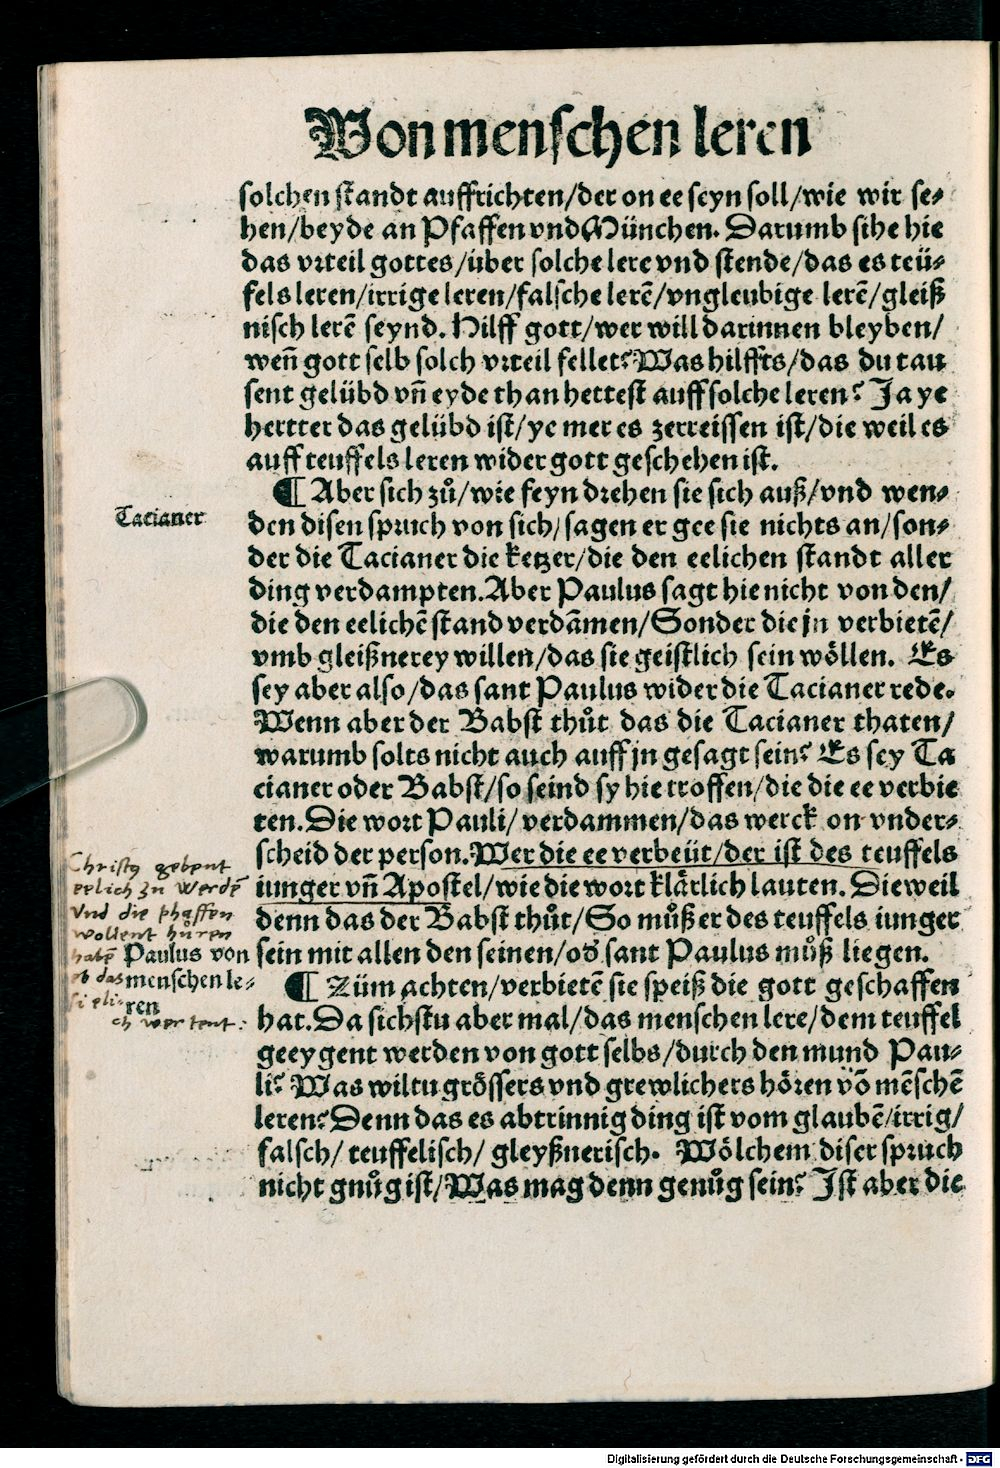 Von menschen leren
solchen standt auffrichten/der on ee seyn soll/wie wir se-
hen/beyde an Pfaffen vnd München. Darumb sihe hie
das vrteil gottes/über solche lere vnd stende/das es teü-
fels leren/irrige leren/falsche lerē/vngleubige lerē/gleiß
nisch lerē seynd. Hilff gott/wer will darinnen bleyben/
weñ gott selb solch vrteil fellet? Was hilffts/das du tau
sent gelübd vñ eyde than hettest auff solche leren? Ja ye
hertter das gelübd ist/ye mer es zerreissen ist/die weil es
auff teuffels leren wider gott geschehen ist.
¶ Aber sich zů/wie feyn drehen sie sich auß/vnd wen-
Tacianer
den disen spruch von sich/sagen er gee sie nichts an/son-
der die Tacianer die ketzer/die den eelichen standt aller
ding verdampten. Aber Paulus sagt hie nicht von den/
die den eelichē stand verdāmen/Sonder die jn verbietē/
vmb gleißnerey willen/das sie geistlich sein wöllen. Es
sey aber also/das sant Paulus wider die Tacianer rede.
Wenn aber der Babst thůt das die Tacianer thaten/
warumb solts nicht auch auff jn gesagt sein? Es sey Ta
cianer oder Babst/so seind sy hie troffen/die die ee verbie
ten. Die wort Pauli/ verdammen/das werck on vnder-
scheid der person. Wer die ee verbeüt/der ist des teuffels
iunger vñ Apostel/wie die wort klärlich lauten. Dieweil
denn das der Babst thůt/So můß er des teuffels iunger
sein mit allen den seinen/od̛ sant Paulus můß liegen.
Christus gebeut
eelich zu werdē
Vnd die phaffen
wollent hůren
habē
Paulus von
menschen le-
ren
¶ Zům achten/verbietē sie speiß die gott geschaffen
hat. Da sichstu aber mal/das menschen lere/dem teuffel
geeygent werden von gott selbs/durch den mund Pau-
li? Was wiltu grössers vnd grewlichers hören vō mēschē
leren? Denn das es abtrinnig ding ist vom glaubē/irrig/
falsch/ teuffelisch/ gleyßnerisch. Wölchem diser spruch
nicht gnůg ist/Was mag denn genůg sein? Ist aber die
Digitalisierung gefördert durch die Deutsche Forschungsgemeinschaft - DFG